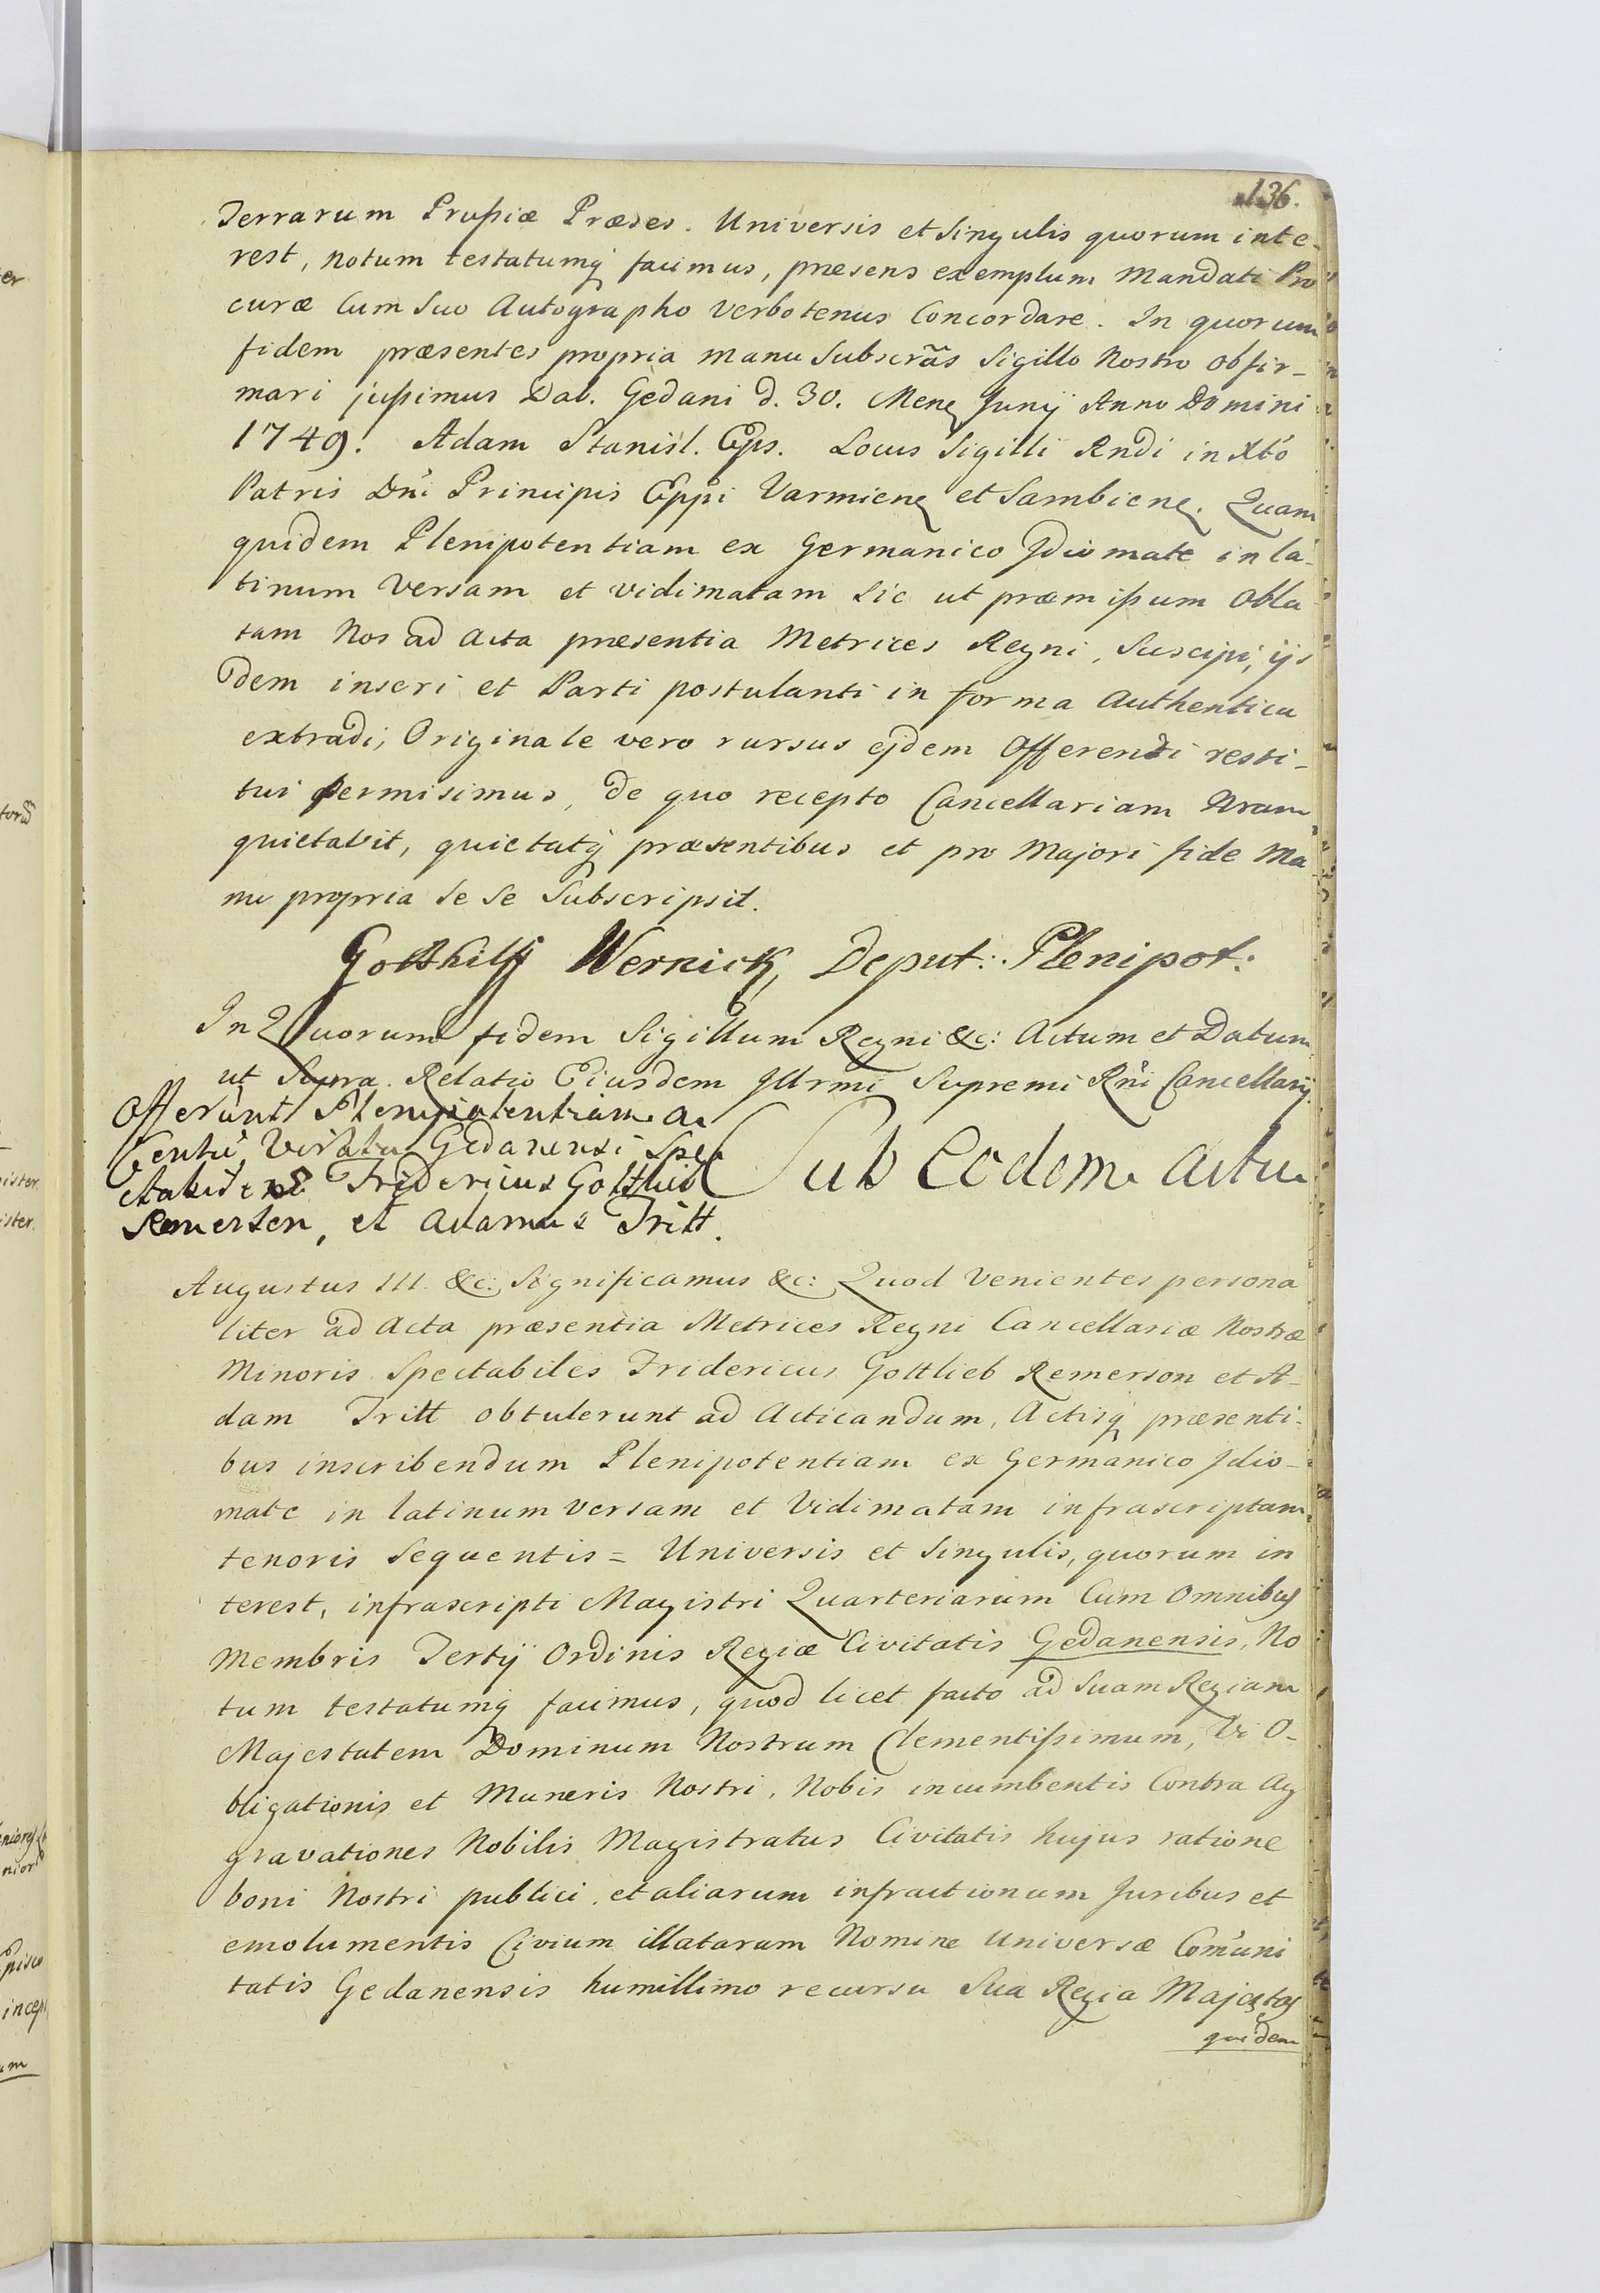 136.
Terrarum Prussiæ Præses. Universis et Singulis quorum inte-
rest, notum testatumq facimus, præsens exemplum Mandati Pro
curæ Cum Suo Autographo Verbotenus Concordare. In quorum
fidem præsentes propria manu Subscrãs Sigillo Nostro obfir-
mari jussimus Dab. Gedani d. 30. Mens Junij Anno Domini
1749. Adam Stanisl. Eps. Locus Sigilli Rndi in Xto
Patris Dni Principis Eppi Varmiens et Sambiens. Quam
quidem Plenipotentiam ex Germanico Idiomate in la-
tinum Versam et vidimatam Sic ut præmissum Obla
tam Nos ad Acta præsentia Metrices Regni, Suscipi, ijs
dem inseri et Parti postulanti in forma Authentica
extradi, Originale vero rursus ejdem Offerendi resti-
tui permisimus, de quo recepto Cancellariam Nram
quietavit, quietatq præsentibus et pro Majori fide Ma
nu propria Se Se Subscripsit.
Gotthilff Wernick, Deput: Plenipot:
In Quorum fidem Sigillum Regni &c: Actum et Datum
ut Supra. Relatio Eiusdem Illrmi Supremi Rni Cancellarij.
Offerunt Plenipotentiam a
Centũ Viratu Gedanensi Spe
ctabiles Fridericus Gottlieb
Remerson, et Adamus Tritt.
Sub Eodem Actu
Augustus III. &c: Significamus &c: Quod Venientes persona
liter ad Acta præsentia Metrices Regni Cancellariæ Nostræ
Minoris Spectabiles Fridericus Gottlieb Remerson et A-
dam Tritt obtulerunt ad Acticandum, Actisq præsenti-
bus inscribendum Plenipotentiam ex Germanico Idio-
mate in latinum versam et Vidimatam infrascriptam
tenoris Sequentis = Universis et Singulis, quorum in
terest, infrascripti Magistri Quarteriarum Cum Omnibus
Membris Tertij Ordinis Regiæ Civitatis Gedanensis, No
tum testatumq facimus, quod licet facto ad Suam Regiam
Majestatem Dominum Nostrum Clementissimum, Vi O-
bligationis et Muneris Nostri, Nobis incumbentis Contra Ag
gravationes Nobilis Magistratus Civitatis hujus ratione
boni Nostri publici, et aliarum infractionum Juribus et
emolumentis Civium illatarum Nomine Universæ Com̃uni
tatis Gedanensis humillimo recursu Sua Regia Majestas
quidem